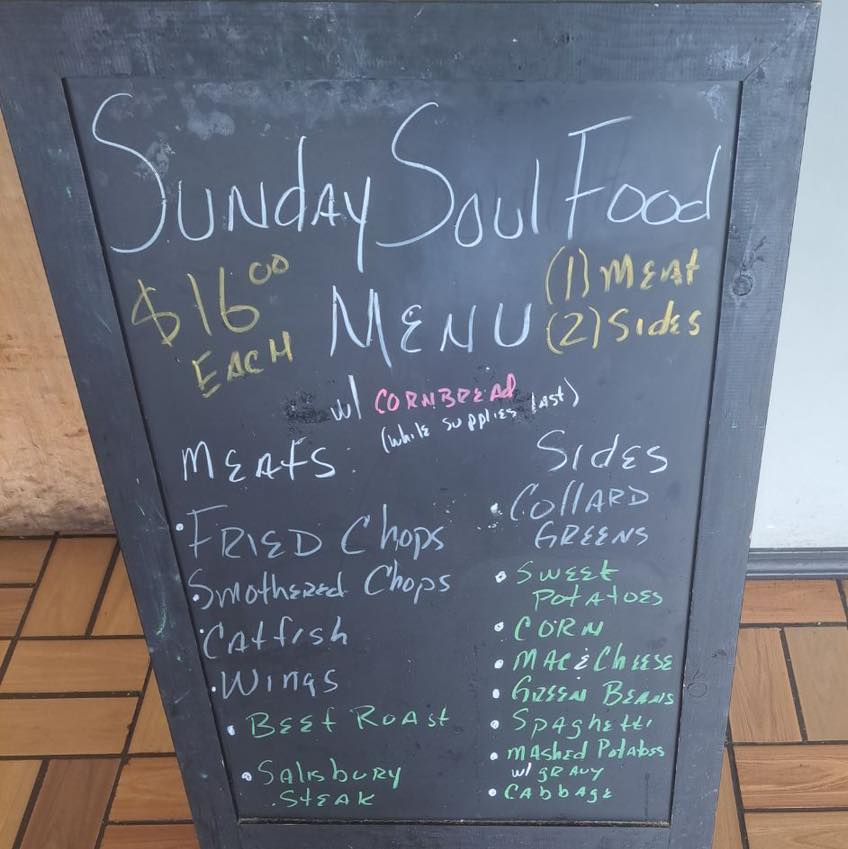 Sunday Soul Food
$16.00
EACH
MENU
(1) MEAT
(2) Sides
w/ CORNBREAD
(while supplies last)
MEATS:
• FRIED Chops
• Smothered Chops
• Catfish
• Wings
• BEEF ROAST
• Salisbury
STEAK
Sides
• Collard
GREENS
• SWEET
POTATOES
• CORN
• MAC & Cheese
• GREEN BEANS
• Spaghetti
• MAShed Potatoes
w/ gravy
• Cabbage